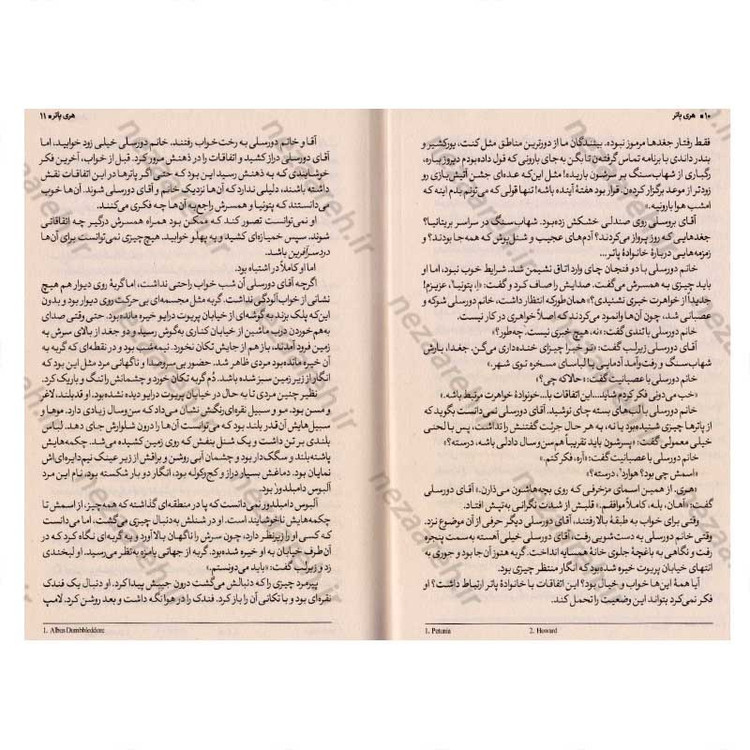 ۱۰ هری پاتر
فقط رفتار جغدها مرموز نبوده. بینندگان ما از دورترین مناطق مثل کنت، یورکشیر و
بندر داندی با برنامه تماس گرفته‌ن تا بگن به جای بارونی که قول داده بودم دیروز بباره،
رگباری از شهاب‌سنگ بر سرشون باریده! مثل این‌که عده‌ای جشن آتیش‌بازی رو
زودتر از موعد برگزار کرده‌ن. قرار بود هفتهٔ آینده باشه! تنها قولی که می‌تونم بدم اینه که
امشب هوا بارونیه.»
آقای دورسلی روی صندلی خشکش زده بود. شهاب‌سنگ در سراسر بریتانیا؟
جغدهایی که روز پرواز می‌کردند؟ آدم‌های عجیب و شنل‌پوش که همه جا بودند؟ و
زمزمه‌هایی دربارهٔ خانوادهٔ پاتر...
خانم دورسلی با دو فنجان چای وارد اتاق نشیمن شد. شرایط خوب نبود، اما او
باید چیزی به همسرش می‌گفت. صدایش را صاف کرد و گفت: «اِ، پتونیا، عزیزم!
جدیداً از خواهرت خبری نشنیدی؟» همان‌طور که انتظار داشت، خانم دورسلی شوکه و
عصبانی شد، چون آن‌ها وانمود می‌کردند که اصلاً خواهری در کار نیست.
خانم دورسلی با تندی گفت: «نه، هیچ خبری نیست. چه‌طور؟»
آقای دورسلی زیر لب گفت: «تو خبرا چیزای خنده‌داری می‌گن. جغدا، بارش
شهاب‌سنگ و رفت‌وآمد آدمایی با لباسای مسخره توی شهر.»
خانم دورسلی با عصبانیت گفت: «حالا که چی؟»
«خب می‌دونی فکر کردم شاید... این اتفاقات با... خونوادهٔ خواهرت مرتبط باشه.»
خانم دورسلی با لب‌های بسته چای نوشید. آقای دورسلی نمی‌دانست بگوید که
از پاترها چیزی شنیده بود یا نه، به هر حال جرئت گفتنش را نداشت، پس با لحنی
خیلی معمولی گفت: «پسرشون باید تقریباً هم سن و سال دادلی باشه، درسته؟»
خانم دورسلی با عصبانیت گفت: «آره، فکر کنم.»
«اسمش چی بود؟ هوارد، درسته؟»
«هری. از همین اسمای مزخرفی که روی بچه‌هاشون می‌ذارن.» آقای دورسلی
گفت: «آهان، بله. کاملاً موافقم.» قلبش از شدت نگرانی به تپش افتاد.
وقتی برای خواب به طبقهٔ بالا رفتند، آقای دورسلی دیگر حرفی از آن موضوع نزد.
وقتی خانم دورسلی به دست‌شویی رفت، آقای دورسلی خیلی آهسته به سمت پنجره
رفت و نگاهی به باغچهٔ جلوی خانهٔ همسایه انداخت. گربه هنوز آن جا بود و جوری به
انتهای خیابان پریوت خیره شده بود که انگار منتظر چیزی بود.
آیا همهٔ این‌ها خواب و خیال بود؟ این اتفاقات با خانوادهٔ پاتر ارتباط داشت؟ او
فکر نمی‌کرد بتواند این وضعیت را تحمل کند.
1. Petunia 2. Howard
هری پاتر ۱۱
آقا و خانم دورسلی به رخت‌خواب رفتند. خانم دورسلی خیلی زود خوابید، اما
آقای دورسلی دراز کشید و اتفاقات را در ذهنش مرور کرد. قبل از خواب، آخرین فکر
خوشایندی که به ذهنش رسید این بود که حتی اگر پاترها در این اتفاقات نقش
داشته باشند، دلیلی ندارد که آن‌ها نزدیک خانم و آقای دورسلی شوند. آن‌ها خوب
می‌دانستند که پتونیا و همسرش راجع به آن‌ها چه فکری می‌کنند.
او نمی‌توانست تصور کند که ممکن بود همراه همسرش درگیر چه اتفاقاتی
شوند. سپس خمیازه‌ای کشید و به پهلو خوابید. هیچ چیزی نمی‌توانست برای آن‌ها
دردسرآفرین باشد.
اما او کاملاً در اشتباه بود.
اگرچه آقای دورسلی آن شب خواب راحتی نداشت، اما گربهٔ روی دیوار هم هیچ
نشانی از خواب‌آلودگی نداشت. گربه مثل مجسمه‌ای بی‌حرکت روی دیوار بود و بدون
این‌که پلک بزند به گوشه‌ای از خیابان پریوت درایو خیره مانده بود. حتی وقتی صدای
به‌هم‌خوردن درب ماشین از خیابان کناری به گوش رسید و دو جغد از بالای سرش به
زمین فرود آمدند، باز هم از جایش تکان نخورد. نیمه‌شب بود و در نقطه‌ای که گربه به
آن خیره مانده بود مردی ظاهر شد. حضور بی‌سروصدا و ناگهانی مرد مثل این بود که
انگار از زیر زمین سبز شده باشد. دُم گربه تکان خورد و چشمانش را تنگ و باریک کرد.
نظیر چنین مردی تا به حال در خیابان پریوت درایو دیده نشده بود. او قدبلند، لاغر
و مسن بود. مو و سبیل نقره‌ای‌رنگش نشان می‌داد که سن‌وسال زیادی دارد. موها و
سبیل‌هایش آن‌قدر بلند بود که می‌توانست آن‌ها را درون شلوارش جای دهد. لباس
بلندی بر تن داشت و یک شنل بنفش که روی زمین کشیده می‌شد. چکمه‌هایش
پاشنه‌بلند و سگک‌دار بود و چشمان آبی روشن و براقش از زیر عینک نیم‌دایره‌ای‌اش
نمایان بود. دماغش بسیار دراز و کج‌وکوله بود، انگار دو بار شکسته بود. نام این مرد
آلبوس دامبلدور بود.
آلبوس دامبلدور نمی‌دانست که پا در منطقه‌ای گذاشته که همه‌چیز، از اسمش تا
چکمه‌هایش ناخوشایند است. او در شنلش به‌دنبال چیزی می‌گشت، اما می‌دانست
که کسی او را زیرنظر دارد، چون سرش را ناگهان بالا آورد و به گربه‌ای نگاه کرد که در
آن طرف خیابان به او خیره شده بود. گربه از جهاتی بامزه به‌نظر می‌رسید. او لبخندی
زد و زیر لب گفت: «باید می‌دونستم.»
پیرمرد چیزی را که دنبالش می‌گشت درون جیبش پیدا کرد. او دنبال یک فندک
نقره‌ای بود و با تکانی آن را باز کرد. فندک را در هوا نگه داشت و بعد روشن کرد. لامپ
1. Albus Dumbledore
nezaareh.ir